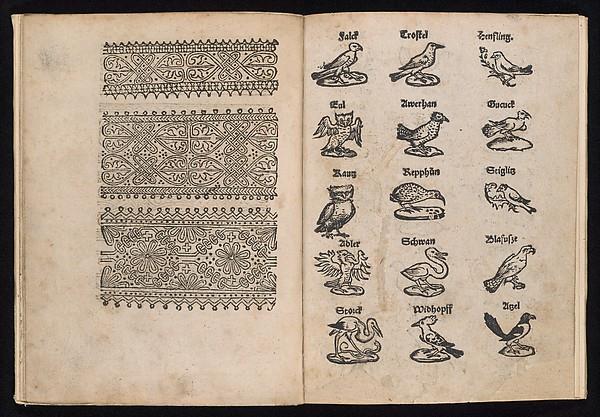 Falck Troſtel Henfling.
Eul Awerhan Guguck
Kautz Repphůn Stiglitz
Adler Schwan Blafuſze
Storck Widhopff Atzel